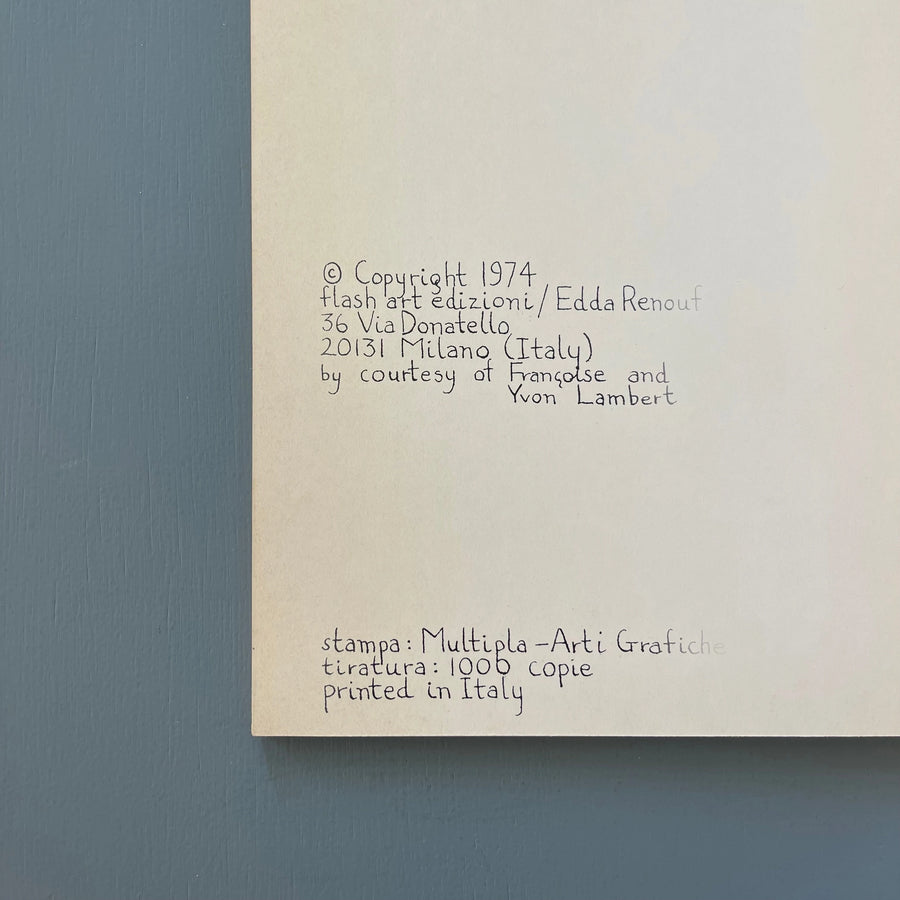 © Copyright 1974
flash art edizioni / Edda Renouf
36 Via Donatello
20131 Milano (Italy)
by courtesy of Françoise and
Yvon Lambert
stampa: Multipla - Arti Grafiche
tiratura: 1000 copie
printed in Italy